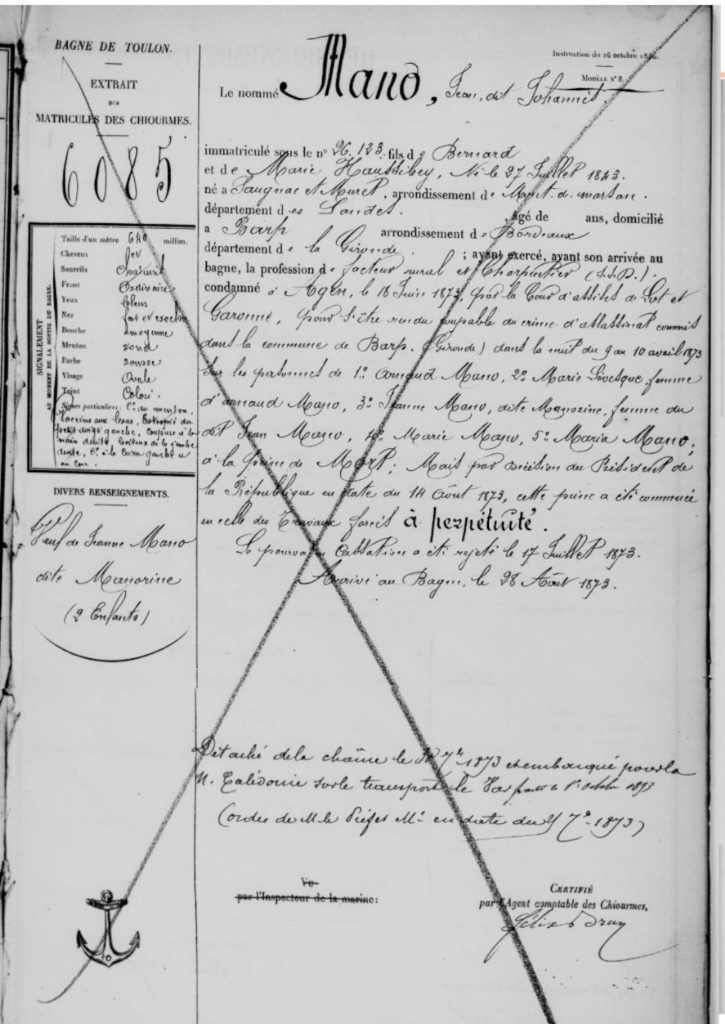 BAGNE DE TOULON.
EXTRAIT
DES
MATRICULES DES CHIOURMES.
6085
Instruction du 16 octobre
MODÈLE N° 8.
Le nommé Mano, Jean, dit Johannès
immatriculé sous le n° 26.123 fils de Bernard
et de Marie Haussibey, Né le 27 Juillet 1843.
né à Saugnac et Muret, arrondissement de Mont de marsan.
département des Landes. âgé de ans, domicilié
a Barp arrondissement de Bordeaux
département de la Gironde ; ayant exercé, ayant son arrivée au
bagne, la profession de facteur rural et Charpentier
condamné à Agen, le 18 Juin 1873, par la Cour d'assises de Lot et
Garonne, pour s'être rendu coupable du crime d'assassinat commis
dans la commune de Barp. (Gironde) dans la nuit du 9 au 10 avril 1873
Sur les personnes de 1° Arnaud Mano, 2° Marie Lévesque femme
d'arnaud Mano, 3° Jeanne Mano, dite Manorine, femme du
dit Jean Mano, 4° Marie Mano, 5° Maria Mano;
à la peine de Mort; Mais par décision du Président de
la République en date du 14 Août 1873, cette peine a été commuée
en celle des Travaux forcés à perpétuité.
Le pourvoi en Cassation a été rejeté le 17 Juillet 1873.
Arrivé au Bagne, le 28 Août 1873.
SIGNALEMENT
AU MOMENT DE LA SORTIE DU BAGNE.
Taille d'un mètre 640 millim.
Cheveux
Sourcils Chatains
Front Ordinaire
Yeux bleus
Nez fort et
Bouche moyenne
Menton rond
Barbe rousse
Visage Ovale
Teint Coloré
Signes particuliers
DIVERS RENSEIGNEMENTS.
Veuf de Jeanne Mano
dite Manorine
(2 Enfants)
Détaché de la chaîne le 7bre 1873 et embarqué pour la
N. Calédonie sur le transport le Var parti le 1er Octobre 1873
(ordre de M. le Préfet Me en date du 7bre 1873)
Vu
par l'Inspecteur de la marine:
CERTIFIÉ
par l'Agent comptable des Chiourmes,